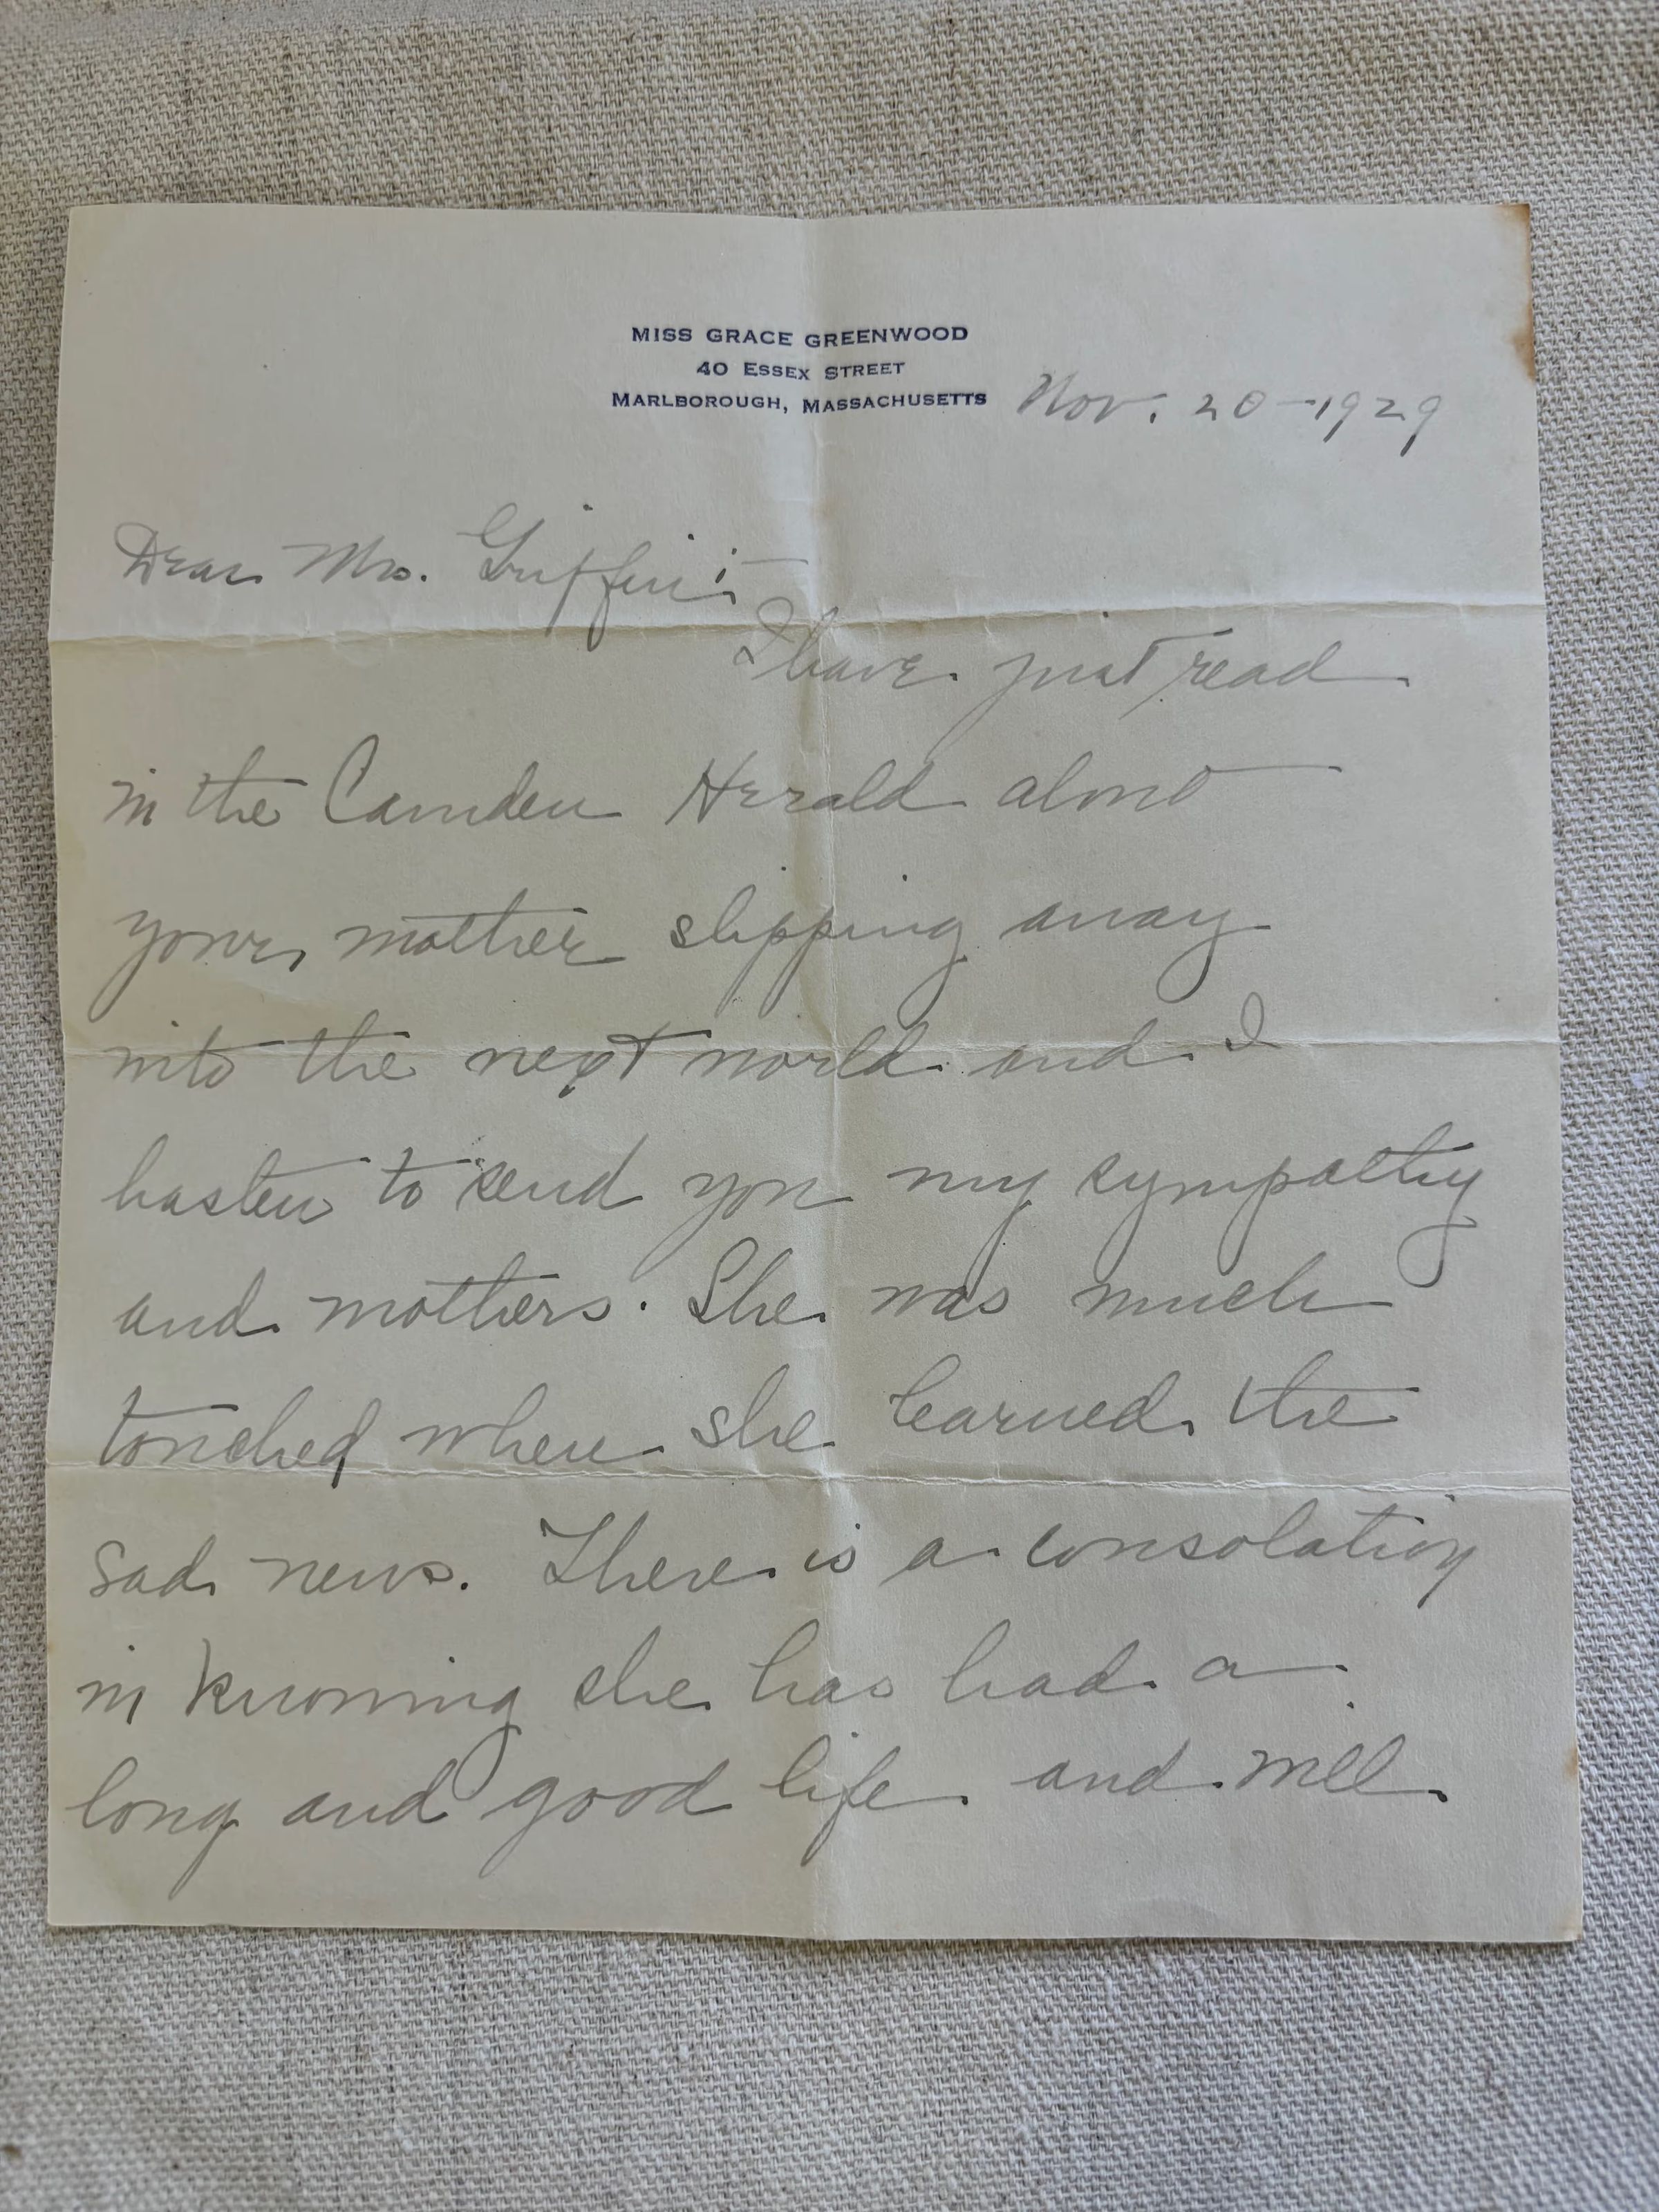 MISS GRACE GREENWOOD
40 ESSEX STREET
MARLBOROUGH, MASSACHUSETTS Nov. 20-1929
Dear Mr. Griffin:-
I have just read
in the Camden Herald about
your mother slipping away
into the next world and I
hasten to send you my sympathy
and mothers. She was much
touched when she learned the
sad news. There is a consolation
in knowing she has had a
long and good life and will